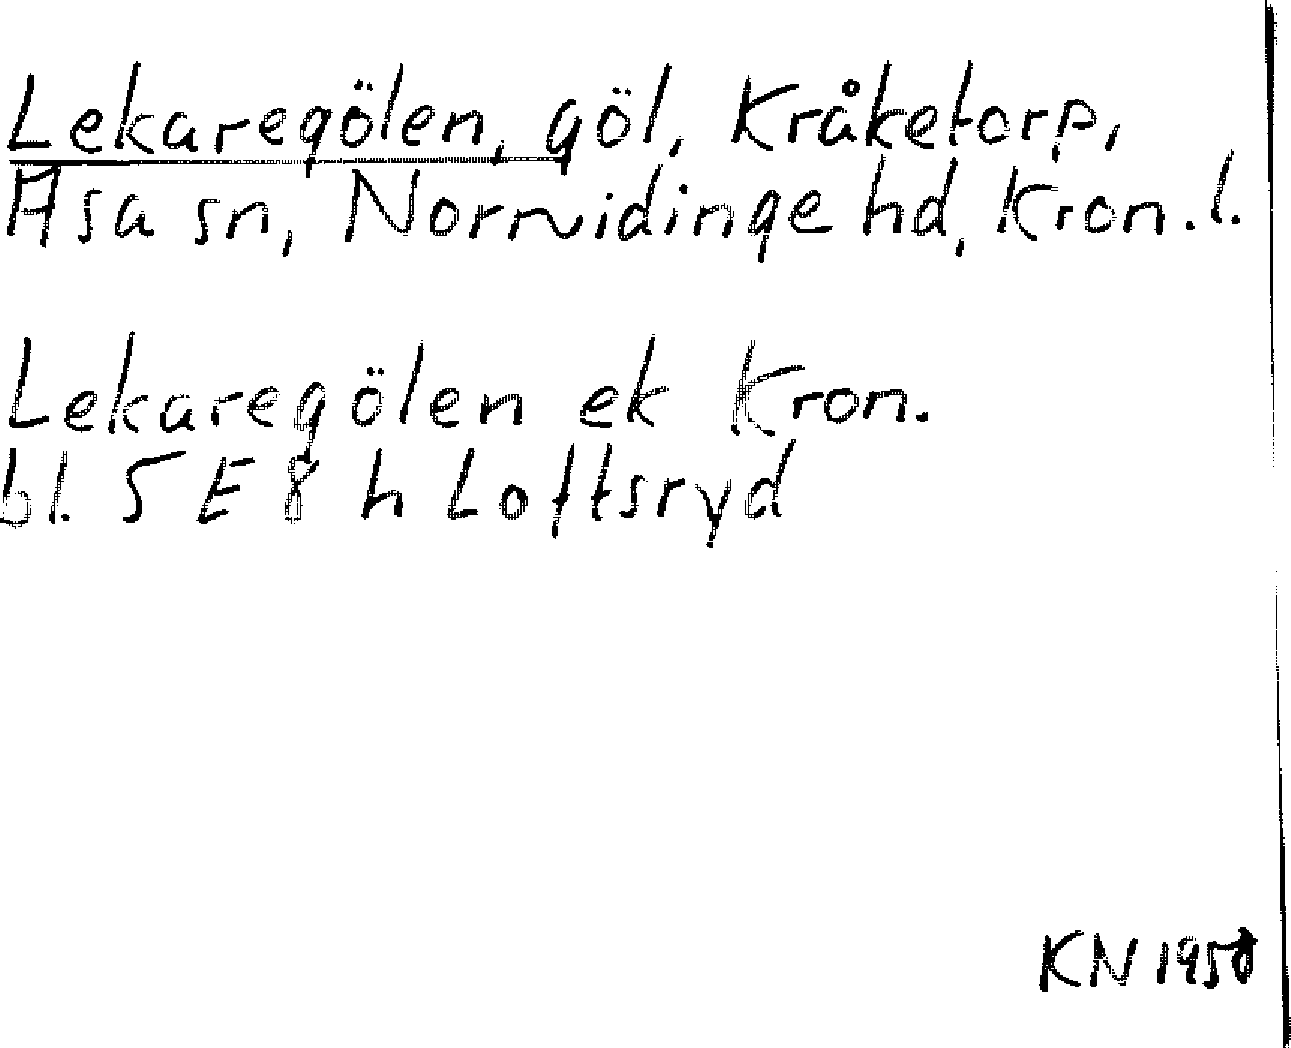 Lekaregölen, göl, Kråketorp,
Asa sn, Norrvidinge hd, Kron. l.
Lekaregölen ek Kron.
bl. 5 E 8 h Loftsryd
KN